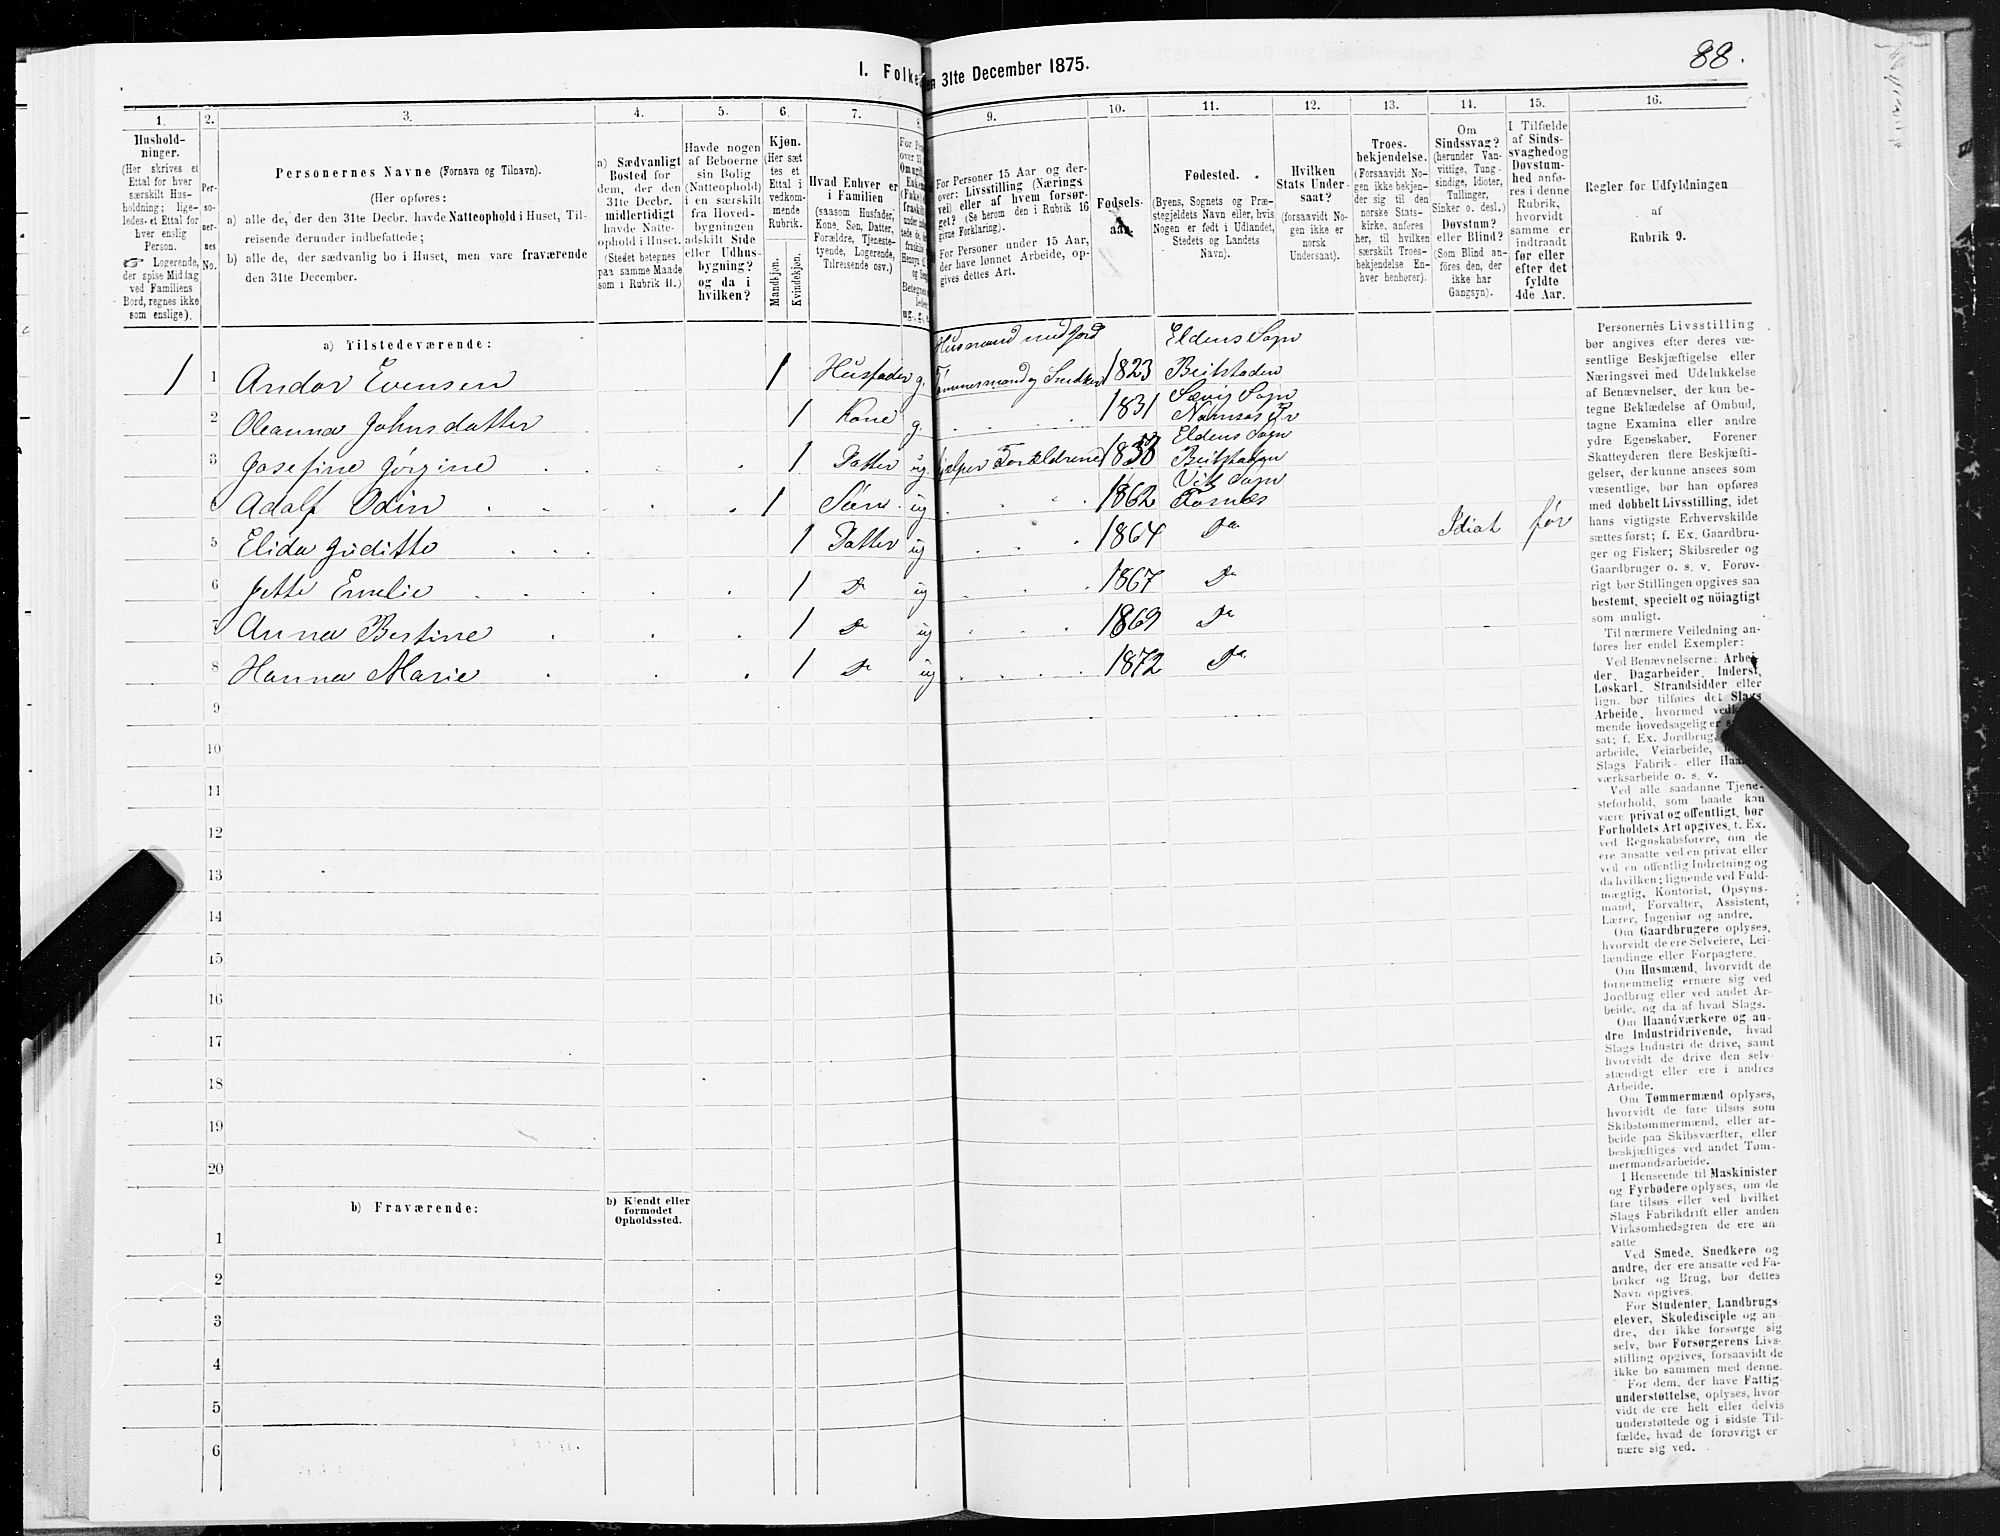 88.
I. Folke
en 31te December 1875.
1.
Hushold-
ninger.
(Her skrives et
Ettal for hver
særskilt Hus-
holdning; lige-
ledes et Ettal for
hver enslig
Person.
☞ Logerende,
der spise Middag
ved Familiens
Bord, regnes ikke
som enslige).
2.
Per-
so-
ner-
nes
No.
3.
Personernes Navne (Fornavn og Tilnavn).
(Her opføres:
a) alle de, der den 31te Decbr. havde Natteophold i Huset, Til-
reisende derunder indbefattede;
b) alle de, der sædvanlig bo i Huset, men vare fraværende
den 31te December.
4.
a) Sædvanligt
Bosted for
dem, der den
31te Decbr.
midlertidigt
havde Natte-
ophold i Huset.
(Stedet betegnes
paa samme Maade
som i Rubrik 11.)
5.
Havde nogen
af Beboerne
sin Bolig
(Natteophold)
i en særskilt
fra Hoved-
bygningen
adskilt Side
eller Udhus-
bygning?
og da i
hvilken?
6.
Kjøn.
(Her sæt
tes et
Ettal i
vedkom-
mende
Rubrik.
Mandkjøn.
Kvindekjøn.
7.
Hvad Enhver er
i Familien
(saasom Husfader,
Kone, Søn, Datter,
Forældre, Tjeneste-
tyende, Logerende,
Tilreisende osv.)
8.
ug., g.,
9.
For Personer 15 Aar og der-
over: Livsstilling (Nærings
vei) eller af hvem forsør-
get? (Se herom den i Rubrik 16
givne Forklaring).
For Personer under 15 Aar,
der have lønnet Arbeide, op-
gives dettes Art.
10.
Fødsels-
aar.
11.
Fødested.
(Byens, Sognets og Præ-
stegjeldets Navn eller, hvis
Nogen er født i Udlandet,
Stedets og Landets
Navn).
12.
Hvilken
Stats Under-
saat?
(forsaavidt No-
gen ikke er
norsk
Undersaat).
13.
Troes-
bekjendelse.
(Forsaavidt No-
gen ikke bekjen-
der sig til den
norske Stats-
kirke, anføres
her, til hvilken
særskilt Troes-
bekjendelse En-
hver henhører).
14.
Om
Sindssvag?
(herunder Van-
vittige, Tung-
sindige, Idioter,
Tullinger,
Sinker o. desl.)
Døvstum?
eller Blind?
(Som Blind an-
føres den, der
ikke har
Gangsyn).
15.
I Tilfælde
af Sinds-
svaghed og
Døvstum-
hed anfø-
res i denne
Rubrik,
hvorvidt
samme er
indtraadt
før eller
efter det
fyldte
4de Aar.
16.
Regler for Udfyldningen
af
Rubrik 9.
a) Tilstedeværende:
Husmand med Jord Eldens Sogn
1 1 Andor Evensen 1 Husfader g. Tømmermand og Snedker 1823 Beitstaden
Sævig Sogn
2 Oleanna Johnsdatter 1 Kone g. 1831 Namsos Pr
Eldens Sogn
3 Josefine Jørgine 1 Datter ug. hjælper Forældrene 1858 Beitstaden
Vik Sogn
4 Adolf Odin 1 Søn ug 1862 Fosnæs
5 Elida Juditte 1 Datter ug 1864 Do Idiot før
6 Jette Emelie 1 Do ug 1867 Do
7 Anna Bertine 1 Do ug 1869 Do
8 Hanna Marie 1 Do ug 1872 Do
9
10
11
12
13
14
15
16
17
18
19
20
b) Fraværende:
b) Kjendt eller
formodet
Opholdssted.
1
2
3
4
5
6
Personernes Livsstilling
bør angives efter deres væ-
sentlige Beskjæftigelse eller
Næringsvei med Udelukkelse
af Benævnelser, der kun be-
tegne Beklædelse af Ombud,
tagne Examina eller andre
ydre Egenskaber. Forener
Skatteyderen flere Beskjæfti-
gelser, der kunne ansees som
væsentlige, bør han opføres
med dobbelt Livsstilling, idet
hans vigtigste Erhvervskilde
sættes først; f. Ex. Gaardbru-
ger og Fisker; Skibsreder og
Gaardbruger o. s. v. Forøv-
rigt bør Stillingen opgives saa
bestemt, specielt og nöiagtigt
som muligt.
Til nærmere Veiledning an-
føres her endel Exempler:
Ved Benævnelserne: Arbei-
der, Dagarbeider, Inderst,
Løskarl, Strandsidder eller
lign. bør tilføies det Slags
Arbeide, hvormed vedkom-
mende hovedsagelig er
sat; f. Ex. Jordbrug,
arbeide, Veiarbeide,
Slags Fabrik- eller Haand-
værksarbeide o. s. v.
Ved alle saadanne Tjene-
steforhold, som baade kan
være privat og offentligt, bør
Forholdets Art opgives, t. Ex.
ved Regnskabsførere, om de
ere ansatte ved en privat eller
ved en offentlig Indretning og
da hvilken; lignende ved Fuld-
mægtig, Kontorist, Opsyns-
mand, Forvalter, Assistent,
Lærer, Ingeniør og andre.
Om Gaardbrugere oplyses,
hvorvidt de ere Selveiere, Lei-
lændinge eller Forpagtere.
Om Husmænd, hvorvidt de
fornemmelig ernære sig ved
Jordbrug eller ved andet Ar-
beide, og da af hvad Slags.
Om Haandværkere og an-
dre Industridrivende, hvad
Slags Industri de drive, samt
hvorvidt de drive den selv-
stændigt eller ere i andres
Arbeide.
Om Tømmermænd oplyses,
hvorvidt de fare tilsøs som
Skibstømmermænd, eller ar-
beide paa Skibsværfter, eller
beskjæftiges ved andet Tøm-
mermandsarbeide.
I Henseende til Maskinister
og Fyrbødere oplyses, om de
fare tilsøs eller ved hvilket
Slags Fabrikdrift eller anden
Virksomhedsgren de ere an-
satte
Ved Smede, Snedkere og
andre, der ere ansatte ved Fa-
briker og Brug, bør dettes
Navn opgives.
For Studenter, Landbrugs-
elever, Skoledisciple og an-
dre, der ikke forsørge sig
selv, bør Forsørgerens Livs-
stilling opgives, forsaavidt de
ikke bo sammen med denne.
For dem, der have Fattig-
understøttelse, oplyses, hvor-
vidt de ere helt eller delvis
understøttede og i sidste Til-
fælde, hvad de forøvrigt er
nære sig ved.